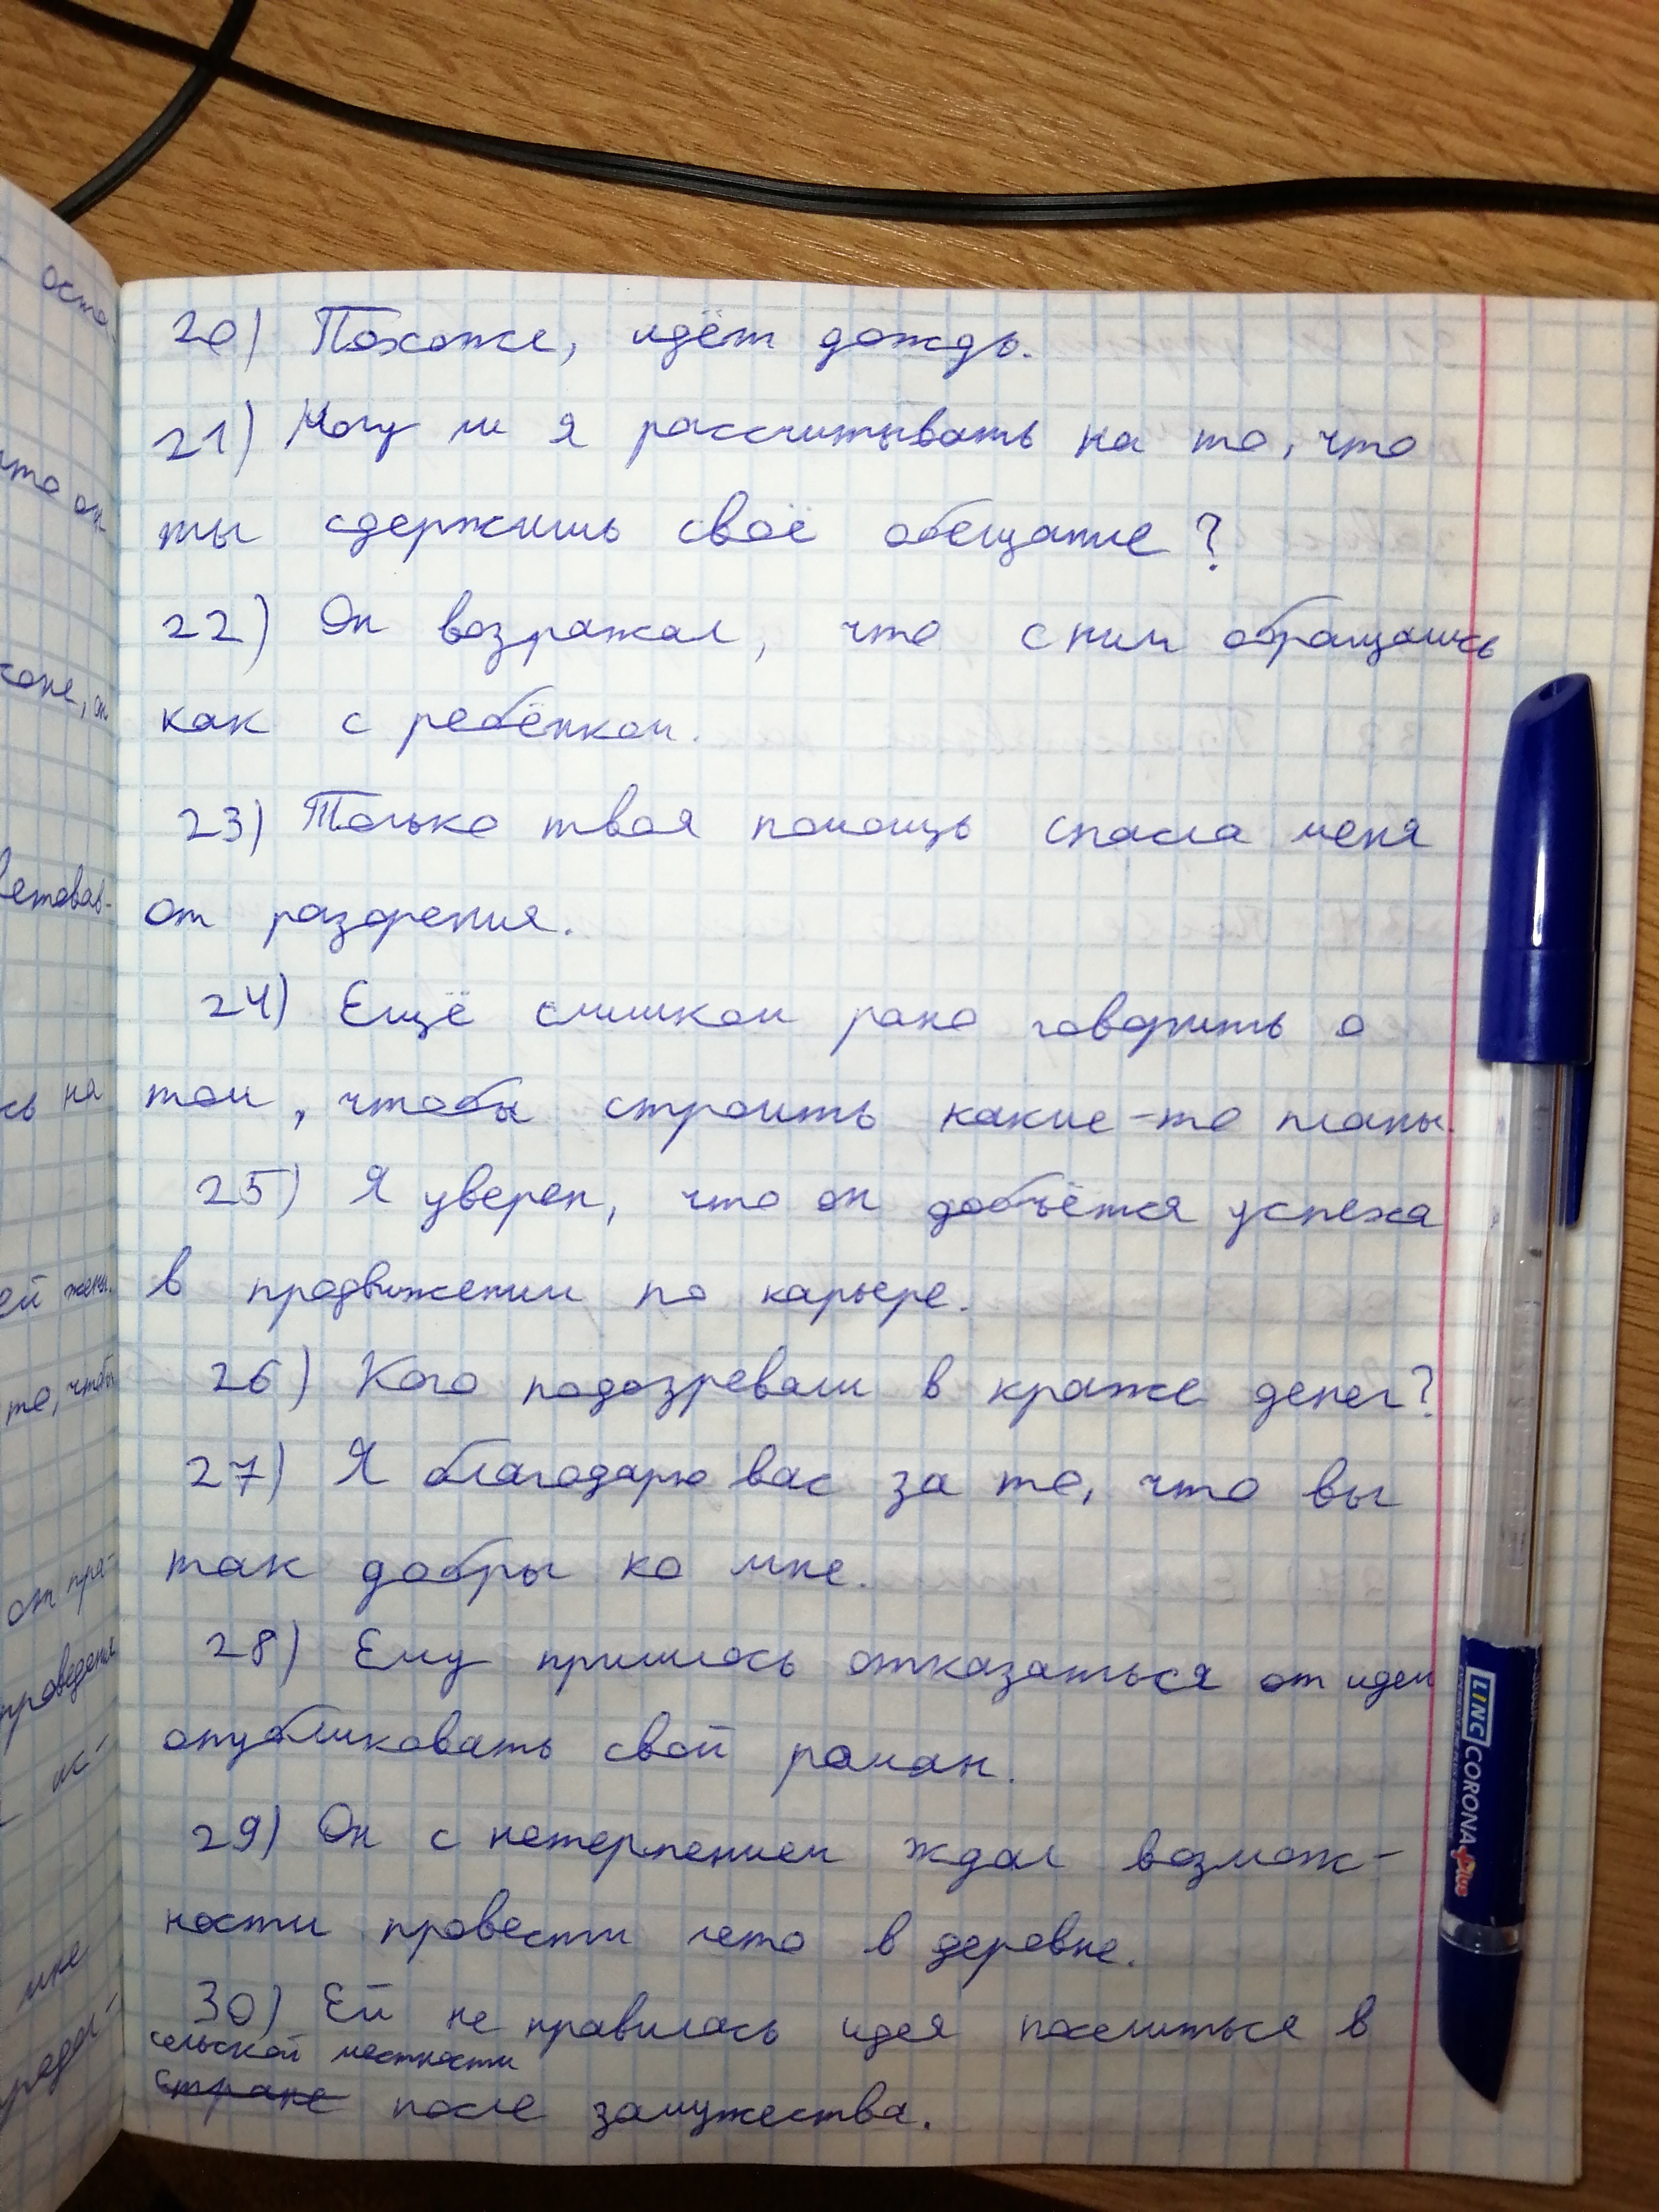 20) Похоже, идёт дождь.
21) Могу ли я рассчитывать на то, что
ты сдержишь своё обещание?
22) Он возражал, что с ним обращались
как с ребёнком.
23) Только твоя помощь спасла меня
от разорения.
24) Ещё слишком рано говорить о
том, чтобы строить какие-то планы.
25) Я уверен, что он добъётся успеха
в продвижении по карьере.
26) Кого подозревали в краже денег?
27) Я благодарю вас за то, что вы
так добры ко мне.
28) Ему пришлось отказаться от идеи
опубликовать свой роман.
29) Он с нетерпением ждал возмож-
ности провести лето в деревне.
30) Ей не нравилась идея поселиться в
сельской местности
стране после замужества.
что он
сь на
ей жены.
то, чтобы
от пра-
мне
LINC CORONA Plus